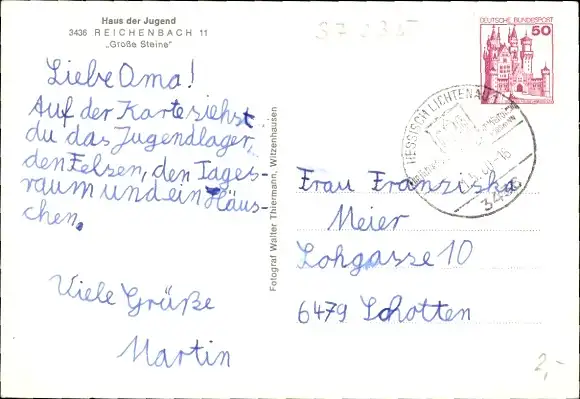 Haus der Jugend
3436 REICHENBACH 11
„Große Steine"
Liebe Oma!
Auf der Karte siehst
du das Jugendlager,
den Felsen, den Tages-
raum und ein Häus-
chen.
Viele Grüße
Martin
Fotograf Walter Thiermann, Witzenhausen
37235
DEUTSCHE BUNDESPOST
50
HESSISCH LICHTENAU 1
3436
Frau Franziska
Meier
Lohgasse 10
6479 Schotten
2,-